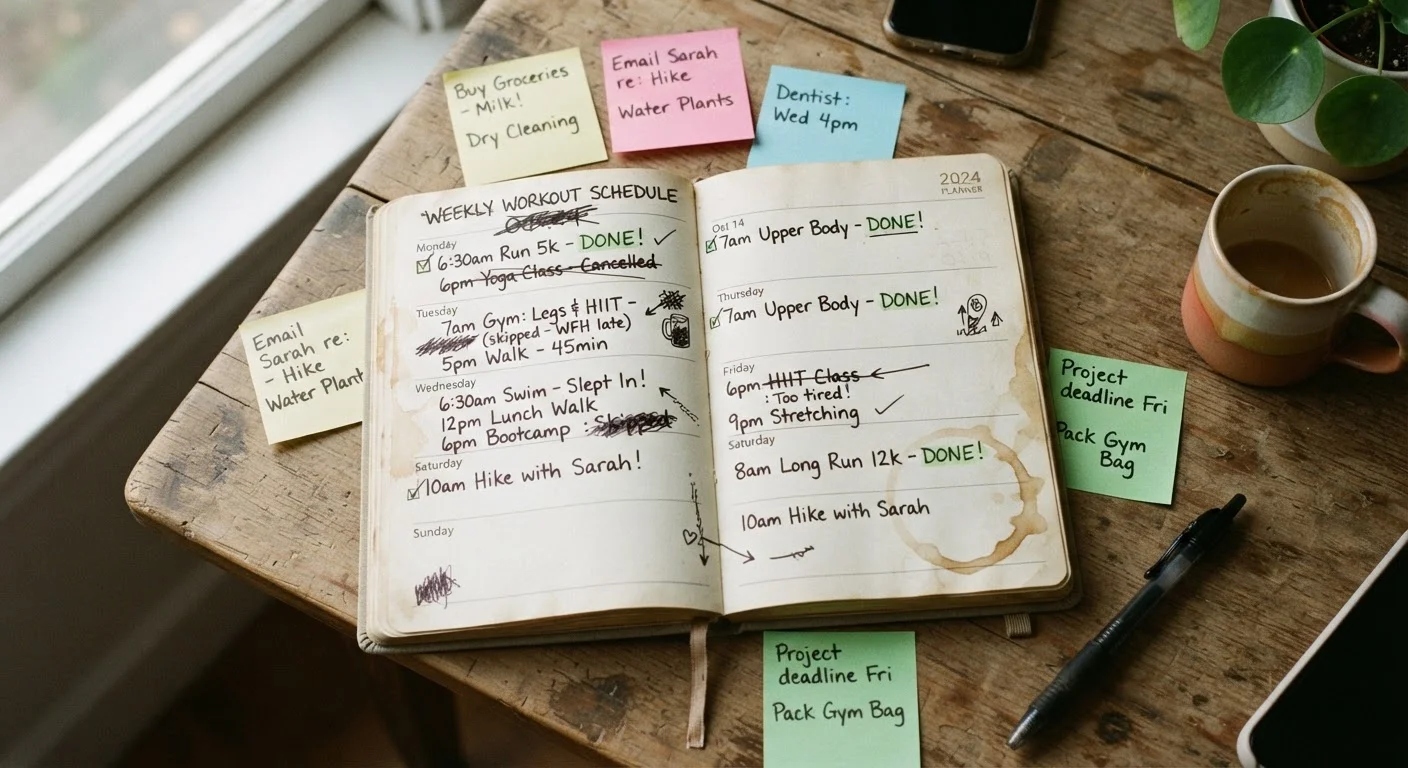 Buy Groceries
- Milk!
Dry Cleaning
Email Sarah
re: Hike
Water Plants
Dentist:
Wed 4pm
Email
Sarah re:
- Hike
Water Plant
WEEKLY WORKOUT SCHEDULE
Monday
6:30am Run 5k - DONE! ✓
6pm Yoga Class - Cancelled
Tuesday
7am Gym: Legs & HIIT -
(skipped - WFH late)
5pm Walk - 45min
Wednesday
6:30am Swim - Slept In!
12pm Lunch Walk
6pm Bootcamp : Skipped
Saturday
10am Hike with Sarah!
Sunday
2024
PLANNER
Oct 14
7am Upper Body - DONE!
Thursday
7am Upper Body - DONE!
Friday
6pm HIIT Class
: Too tired!
9pm Stretching ✓
Saturday
8am Long Run 12k - DONE!
10am Hike with Sarah
Project
deadline Fri
Pack Gym
Bag
Project
deadline Fri
Pack Gym Bag